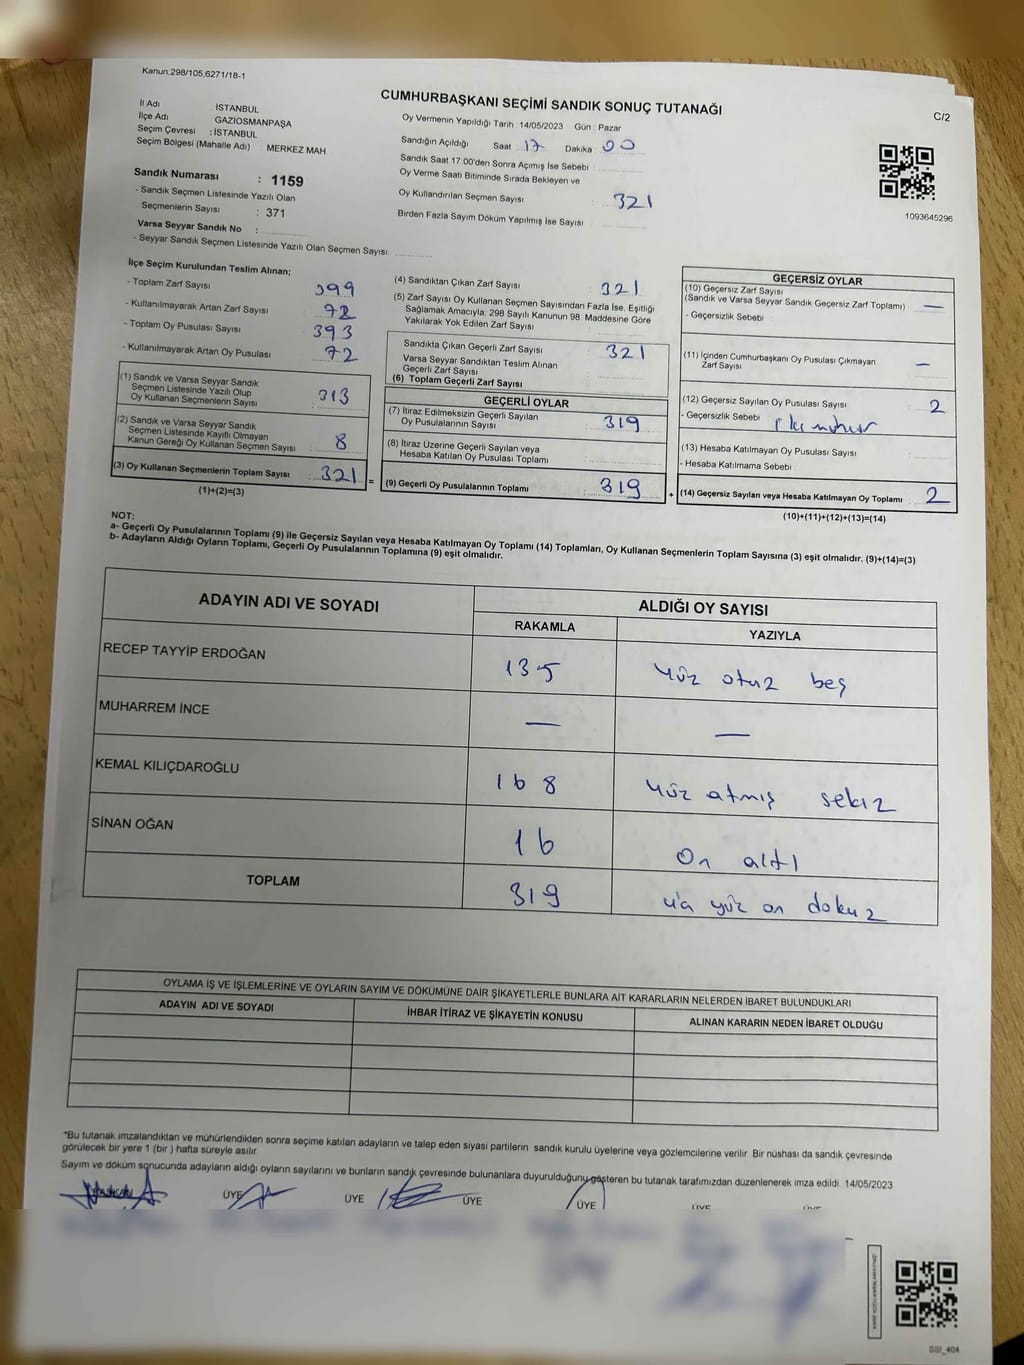 Kanun:298/105,6271/18-1
CUMHURBAŞKANI SEÇİMİ SANDIK SONUÇ TUTANAĞI
C/2
İl Adı : İSTANBUL
İlçe Adı GAZİOSMANPAŞA
Seçim Çevresi : İSTANBUL
Seçim Bölgesi (Mahalle Adı) : MERKEZ MAH
Sandık Numarası : 1159
- Sandık Seçmen Listesinde Yazılı Olan
Seçmenlerin Sayısı : 371
Varsa Seyyar Sandık No :
- Seyyar Sandık Seçmen Listesinde Yazılı Olan Seçmen Sayısı
Oy Vermenin Yapıldığı Tarih : 14/05/2023 Gün : Pazar
Sandığın Açıldığı Saat : 17 Dakika : 00
Sandık Saat 17:00'den Sonra Açımış İse Sebebi :
Oy Verme Saati Bitiminde Sırada Bekleyen ve
Oy Kullandırılan Seçmen Sayısı : 321
Birden Fazla Sayım Döküm Yapılmış İse Sayısı :
1093645296
İlçe Seçim Kurulundan Teslim Alınan;
- Toplam Zarf Sayısı : 399
- Kullanılmayarak Artan Zarf Sayısı :
- Toplam Oy Pusulası Sayısı : 393
- Kullanılmayarak Artan Oy Pusulası : 72
(1) Sandık ve Varsa Seyyar Sandık
Seçmen Listesinde Yazılı Olup
Oy Kullanan Seçmenlerin Sayısı : 313
(2) Sandık ve Varsa Seyyar Sandık
Seçmen Listesinde Kayıtlı Olmayan
Kanun Gereği Oy Kullanan Seçmen Sayısı : 8
(3) Oy Kullanan Seçmenlerin Toplam Sayısı : 321 =
(1)+(2)=(3)
(4) Sandıktan Çıkan Zarf Sayısı : 321
(5) Zarf Sayısı Oy Kullanan Seçmen Sayısından Fazla İse, Eşitliği
Sağlamak Amacıyla, 298 Sayılı Kanunun 98. Maddesine Göre
Yakılarak Yok Edilen Zarf Sayısı
Sandıkta Çıkan Geçerli Zarf Sayısı : 321
Varsa Seyyar Sandıktan Teslim Alınan
Geçerli Zarf Sayısı
(6) Toplam Geçerli Zarf Sayısı
GEÇERLİ OYLAR
(7) İtiraz Edilmeksizin Geçerli Sayılan
Oy Pusulalarının Sayısı : 319
(8) İtiraz Üzerine Geçerli Sayılan veya
Hesaba Katılan Oy Pusulası Toplamı :
(9) Geçerli Oy Pusulalarının Toplamı : 319 +
GEÇERSİZ OYLAR
(10) Geçersiz Zarf Sayısı
(Sandık ve Varsa Seyyar Sandık Geçersiz Zarf Toplamı) : —
- Geçersizlik Sebebi :
(11) İçinden Cumhurbaşkanı Oy Pusulası Çıkmayan
Zarf Sayısı : —
(12) Geçersiz Sayılan Oy Pusulası Sayısı : 2
- Geçersizlik Sebebi : iki mühür
(13) Hesaba Katılmayan Oy Pusulası Sayısı :
- Hesaba Katılmama Sebebi :
(14) Geçersiz Sayılan veya Hesaba Katılmayan Oy Toplamı : 2
(10)+(11)+(12)+(13)=(14)
NOT:
a- Geçerli Oy Pusulalarının Toplamı (9) ile Geçersiz Sayılan veya Hesaba Katılmayan Oy Toplamı (14) Toplamları, Oy Kullanan Seçmenlerin Toplam Sayısına (3) eşit olmalıdır. (9)+(14)=(3)
b- Adayların Aldığı Oyların Toplamı, Geçerli Oy Pusulalarının Toplamına (9) eşit olmalıdır.
ADAYIN ADI VE SOYADI ALDIĞI OY SAYISI
RAKAMLA YAZIYLA
RECEP TAYYİP ERDOĞAN 135 Yüz otuz beş
MUHARREM İNCE — —
KEMAL KILIÇDAROĞLU 168 Yüz atmış sekiz
SİNAN OĞAN 16 On altı
TOPLAM 319 yüz on dokuz
OYLAMA İŞ VE İŞLEMLERİNE VE OYLARIN SAYIM VE DÖKÜMÜNE DAİR ŞİKAYETLERLE BUNLARA AİT KARARLARIN NELERDEN İBARET BULUNDUKLARI
ADAYIN ADI VE SOYADI İHBAR İTİRAZ VE ŞİKAYETİN KONUSU ALINAN KARARIN NEDEN İBARET OLDUĞU
*Bu tutanak imzalandıktan ve mühürlendikten sonra seçime katılan adayların ve talep eden siyasi partilerin sandık kurulu üyelerine veya gözlemcilerine verilir Bir nüshası da sandık çevresinde
görülecek bir yere 1 (bir ) hafta süreyle asılır.
Sayım ve döküm sonucunda adayların aldığı oyların sayılarını ve bunların sandık çevresinde bulunanlara duyurulduğunu gösteren bu tutanak tarafımızdan düzenlenerek imza edildi 14/05/2023
BAŞKAN ÜYE ÜYE ÜYE ÜYE ÜYE ÜYE
SSI_404